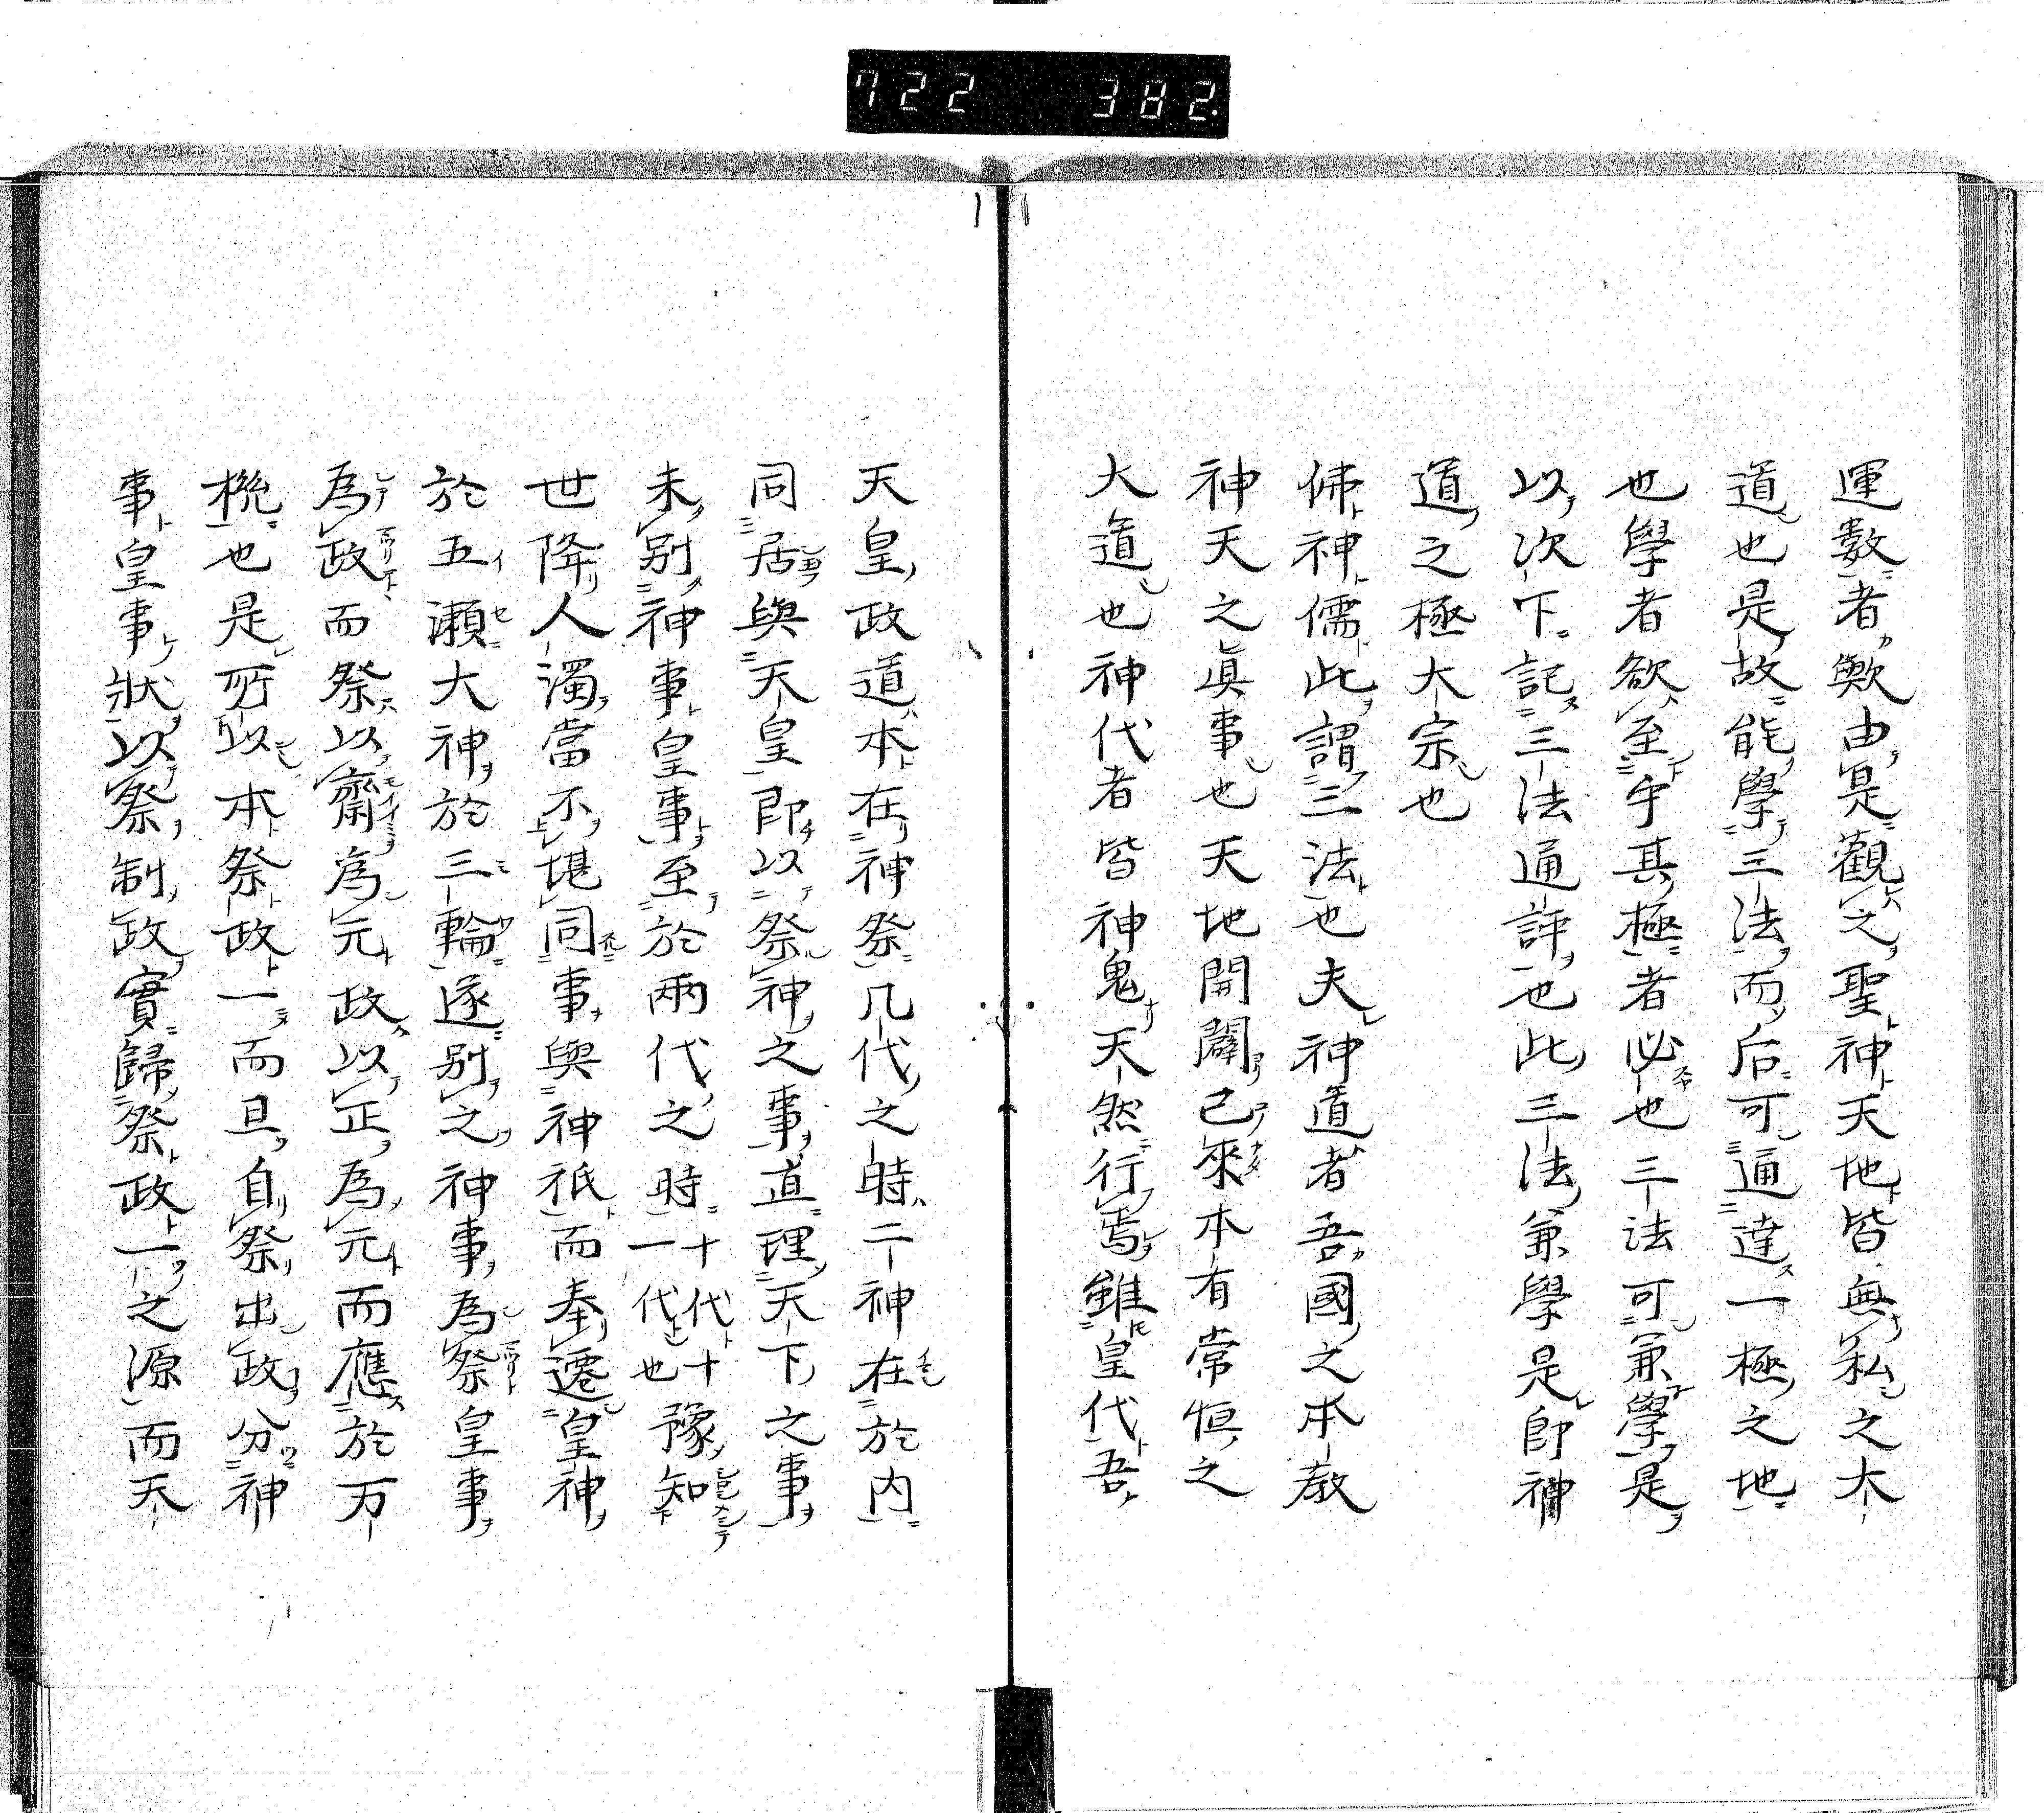 722 382.
運數者歟由是觀之聖神天地皆無私之大
道也是故能學三法而后可通達一極之地
也學者欲至乎其極者必也三法可兼學是
以次下記三法通評也此三法兼學是即神
道之極大宗也
佛神儒此謂三法也夫神道者吾國之本教
神天之眞事也天地開闢已來本有常恒之
大道也神代者皆神鬼天然行焉雖皇代吾
天皇政道本在神祭几代之時二神在於内
同居與天皇即以祭神之事道理天下之事
未別神事皇事至於兩代之時十代十一代也豫知
世降人濁當不堪同事與神祇而奉遷皇神
於五瀬大神於三輪遂別之神事為祭皇事
為政而祭以齋為元政以正為元而應於万
機也是所以本祭政一而且自祭出政分神
事皇事狀以祭制政實歸祭政一之源而天